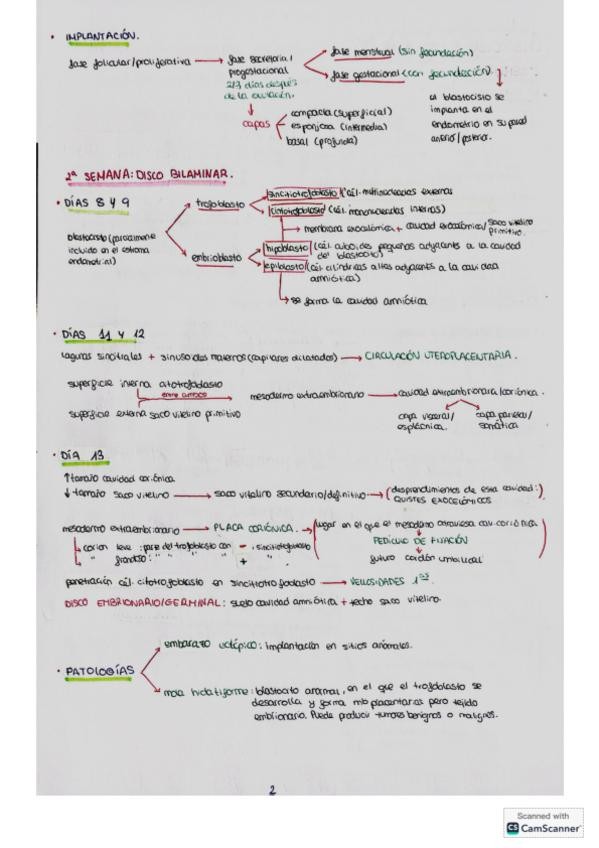 · IMPLANTACIÓN.
fase folicular/proliferativa → fase secretoria/ progestacional 2/3 días después de la ovulación.
fase menstrual (sin fecundación)
fase gestacional (con fecundación).
capas
compacta (superficial)
esponjosa (intermedia)
basal (profunda)
el blastocisto se
implanta en el
endometrio en su pared
anterior/posterior.
2ª SEMANA: DISCO BILAMINAR.
· DÍAS 8 Y 9
blastocisto (parcialmente
incluido en el estroma
endometrial)
trofoblasto
sincitiotrofoblasto (cél. multinucleadas externas
citotrofoblasto (cél. mononucleadas internas)
membrana exocelómica + cavidad exocelómica/ saco vitelino primitivo.
embrioblasto
hipoblasto (cél. cuboides pequeñas adyacentes a la cavidad
del blastocito)
epiblasto (cél. cilíndricas altas adyacentes a la cavidad
amniótica)
se forma la cavidad amniótica
· DÍAS 11 Y 12
lagunas sincitiales + sinusoides maternos (capilares dilatados) → CIRCULACIÓN UTEROPLACENTARIA.
superficie interna citotrofoblasto
entre ambos
superficie externa saco vitelino primitivo
mesodermo extraembrionario → cavidad extraembrionaria/coriónica.
capa visceral/
esplácnica.
capa parietal/
somática
· DÍA 13
↑ tamaño cavidad coriónica
↓ tamaño saco vitelino → saco vitelino secundario/definitivo → (desprendimientos de esta cavidad:
QUISTES EXOCELÓMICOS)
mesodermo extraembrionario → PLACA CORIÓNICA. → (lugar en el que el mesodermo atraviesa cav. coriónica
PEDÍCULO DE FIJACIÓN
futuro cordón umbilical)
corion leve: parte del trofoblasto con - sincitiotrofoblasto
" frondoso: " " " + "
penetración cél. citotrofoblasto en sincitiotrofoblasto → VELLOSIDADES 1ªˢ
DISCO EMBRIONARIO/GERMINAL: suelo cavidad amniótica + techo saco vitelino.
· PATOLOGÍAS
embarazo ectópico: implantación en sitios anómalos.
mola hidatiforme: blastocito anormal, en el que el trofoblasto se
desarrolla y forma mb placentarias pero tejido
embrionario. Puede producir tumores benignos o malignos.
2
Scanned with
CS CamScanner